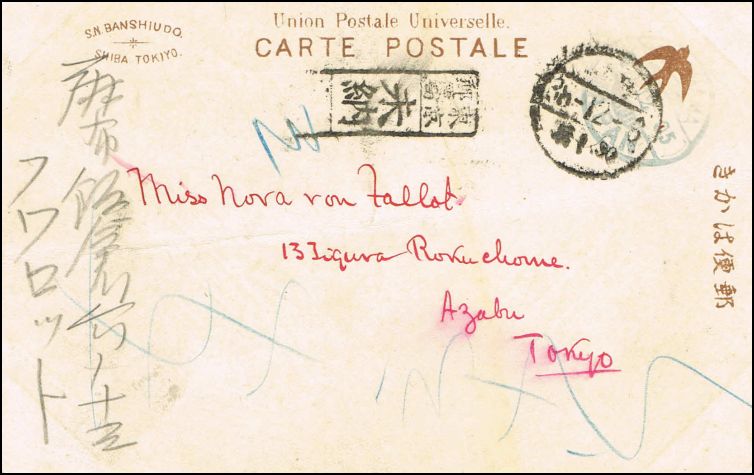 S.N. BANSHIUDO.
SHIBA TOKIYO.
Union Postale Universelle.
CARTE POSTALE
東京
未納
Miss Nora von Fallot
13 Iigura Rokuchome.
Azabu
Tokyo
きかは便郵
麻布飯倉六ノ十三
フワロット